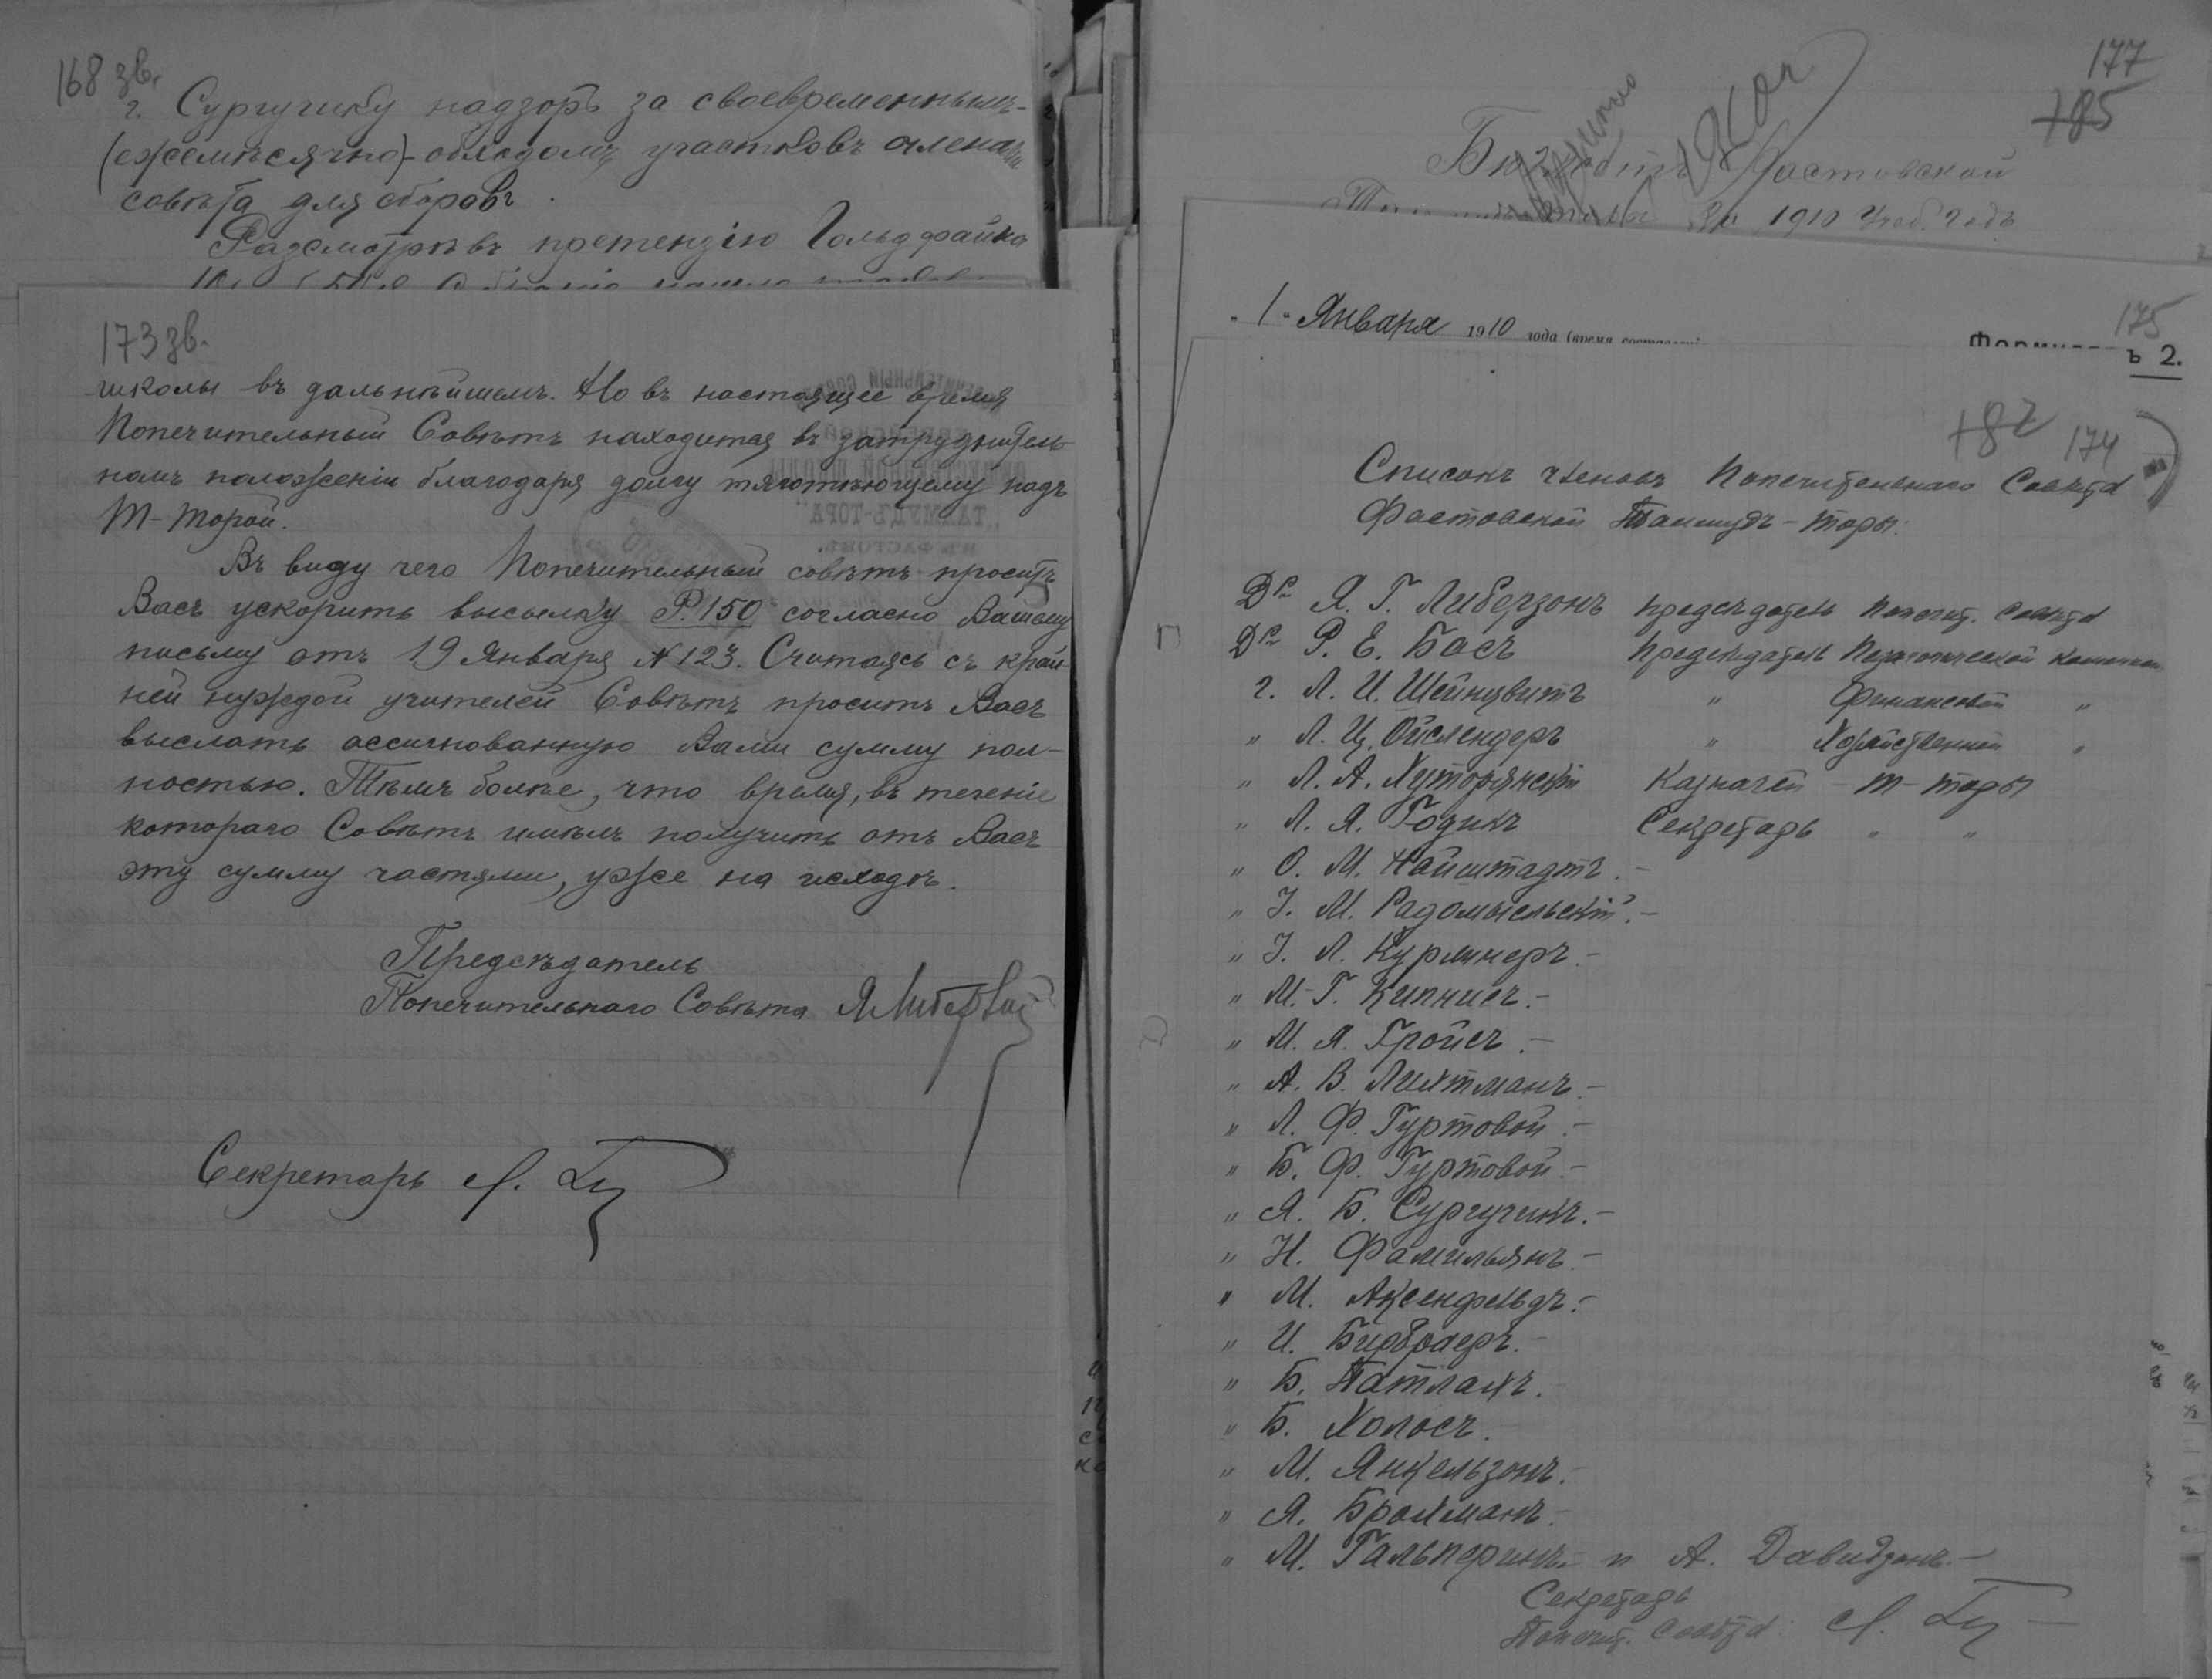 168 зв.
г. Сургучику надзоръ за своевременнымъ-
(ежемѣсячно)-обходомъ участковъ членами
совѣта для сборовъ.
Разсмотрѣвъ претензію Гольдфайна
173 зв.
школы въ дальнѣйшемъ. Но въ настоящее время
Попечительный Совѣтъ находится въ затруднитель-
номъ положеніи благодаря долгу тяготѣющему надъ
Т-Торой.
Въ виду чего Попечительный совѣтъ проситъ
Васъ ускорить высылку Р. 150 согласно Вашему
письму отъ 19 Января № 123. Считаясь съ край-
ней нуждой учителей Совѣтъ проситъ Васъ
выслать ассигнованную Вами сумму пол-
ностью. Тѣмъ болѣе, что время, въ теченіе
котораго Совѣтъ имѣлъ получить отъ Васъ
эту сумму частями, уже на исходѣ.
Предсѣдатель
Попечительнаго Совѣта
Секретарь
177
185
Фастовской
за 1910 Учеб. годъ
„1" Января 1910 года
175
ъ 2.
182 174
Списокъ членовъ Попечительнаго Совѣта
Фастовской Талмудъ-Торы:
Д-ръ Я. Г. Либерзонъ предсѣдатель Попечит. Совѣта
Д-ръ Р. Е. Басъ Предсѣдатель Педагогической комиссіи
г. Л. И. Шейнцвитъ " Финансовой "
" Л. Ц. Ойслендеръ " Хозяйственной "
" Л. А. Хуторянскій Казначей Т-Торы
" Л. Я. Годикъ Секретарь " "
" О. М. Найштадтъ.-
" І. М. Радомысльскій.-
" І. Л. Курлинеръ.-
" М. Г. Кипнисъ.-
" М. Я. Гройсъ.-
" А. В. Лихтманъ.-
" Л. Ф. Гуртовой.-
" Б. Ф. Гуртовой.-
" Я. Б. Сургучикъ.-
" Н. Фамильянъ.-
" М. Аксенфельдъ.-
" И. Бирбраеръ.-
" Б. Патлахъ.
" Б. Холосъ.
" М. Янкельзонъ.-
" Я. Бройманъ.-
" М. Гальперинъ.- и А. Давидзонъ.-
Секретарь
Попечит. Совѣта: